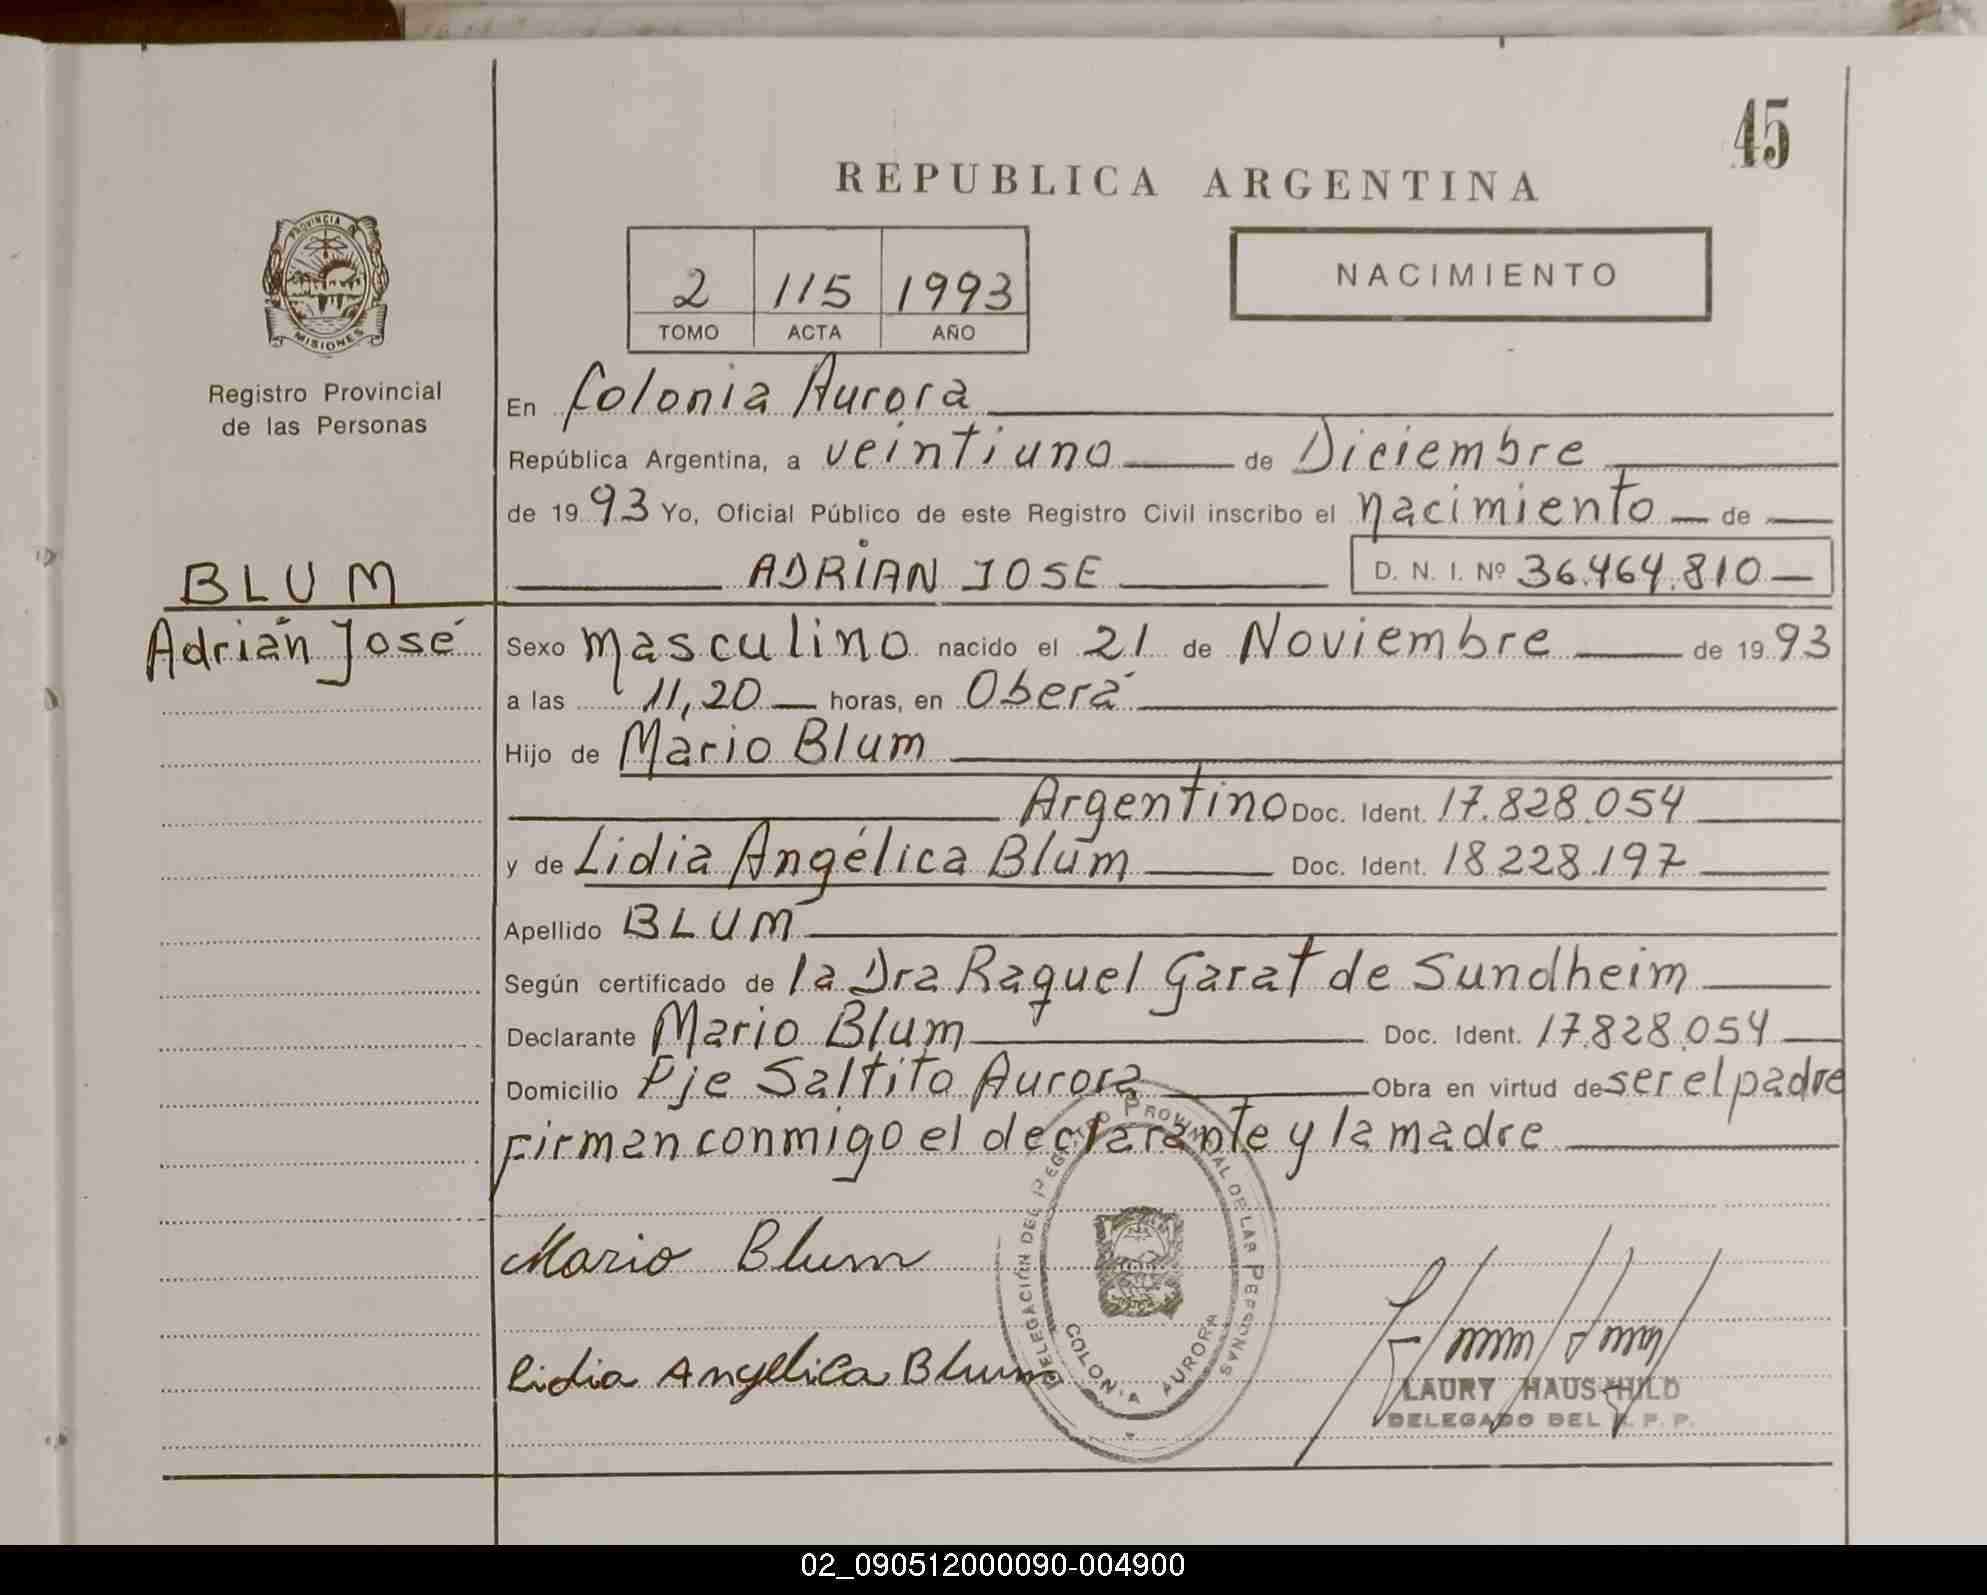 45
REPUBLICA ARGENTINA
PROVINCIA DE
MISIONES
Registro Provincial
de las Personas
2 115 1993
TOMO ACTA AÑO
NACIMIENTO
En Colonia Aurora
República Argentina, a veintiuno de Diciembre
de 1993 Yo, Oficial Público de este Registro Civil inscribo el nacimiento de
BLUM
Adrián José
ADRIAN JOSE D. N. I. Nº 36.464.810
Sexo masculino nacido el 21 de Noviembre de 1993
a las 11,20 horas, en Oberá
Hijo de Mario Blum
Argentino Doc. Ident. 17.828.054
y de Lidia Angélica Blum Doc. Ident. 18.228.197
Apellido BLUM
Según certificado de la Dra Raquel Garat de Sundheim
Declarante Mario Blum Doc. Ident. 17.828.054
Domicilio Pje Saltito Aurora Obra en virtud de ser el padre
Firman conmigo el declarante y la madre
Mario Blum
Lidia Angelica Blum
DELEGACIÓN DEL REGISTRO PROVINCIAL DE LAS PERSONAS
COLONIA AURORA
LAURY HAUSCHILD
DELEGADO DEL R. P. P.
02_090512000090-004900